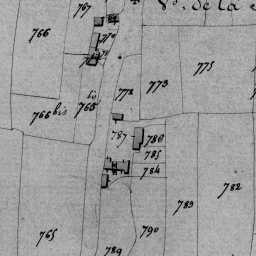 767
de la
766
775
773
772
766 bis
768
787
786
785
784
782
783
765
790
789